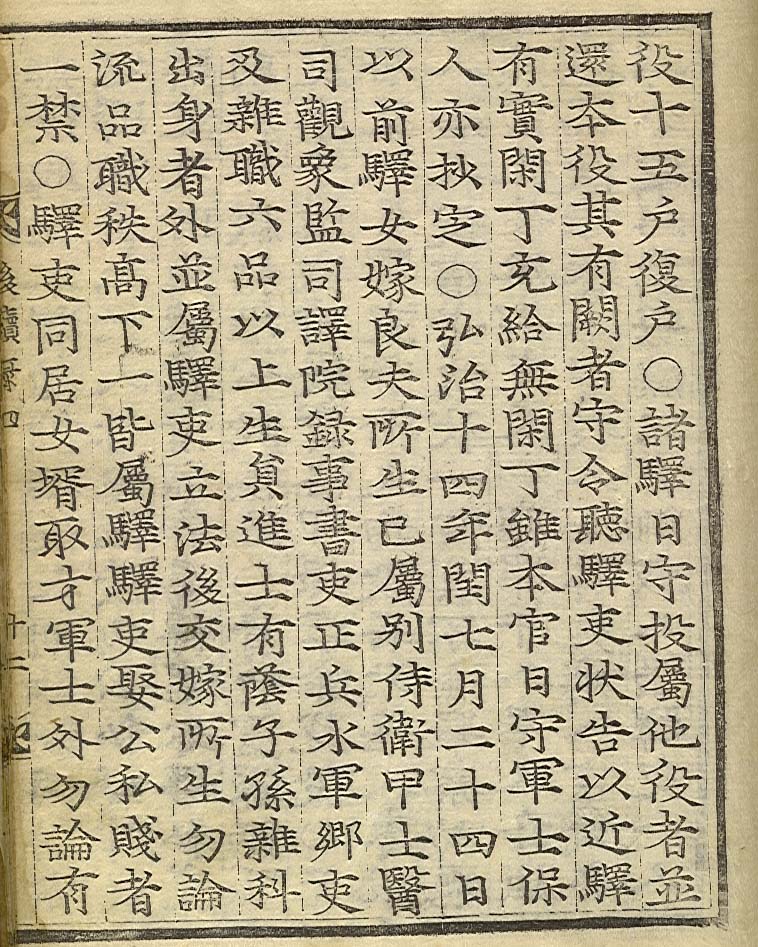 役十五戶復戶○諸驛日守投屬他役者並
還本役其有闕者守令聽驛吏狀告以近驛
有實閑丁充給無閑丁雖本官日守軍士保
人亦抄定○弘治十四年閏七月二十四日
以前驛女嫁良夫所生已屬別侍衛甲士醫
司觀象監司譯院錄事書吏正兵水軍鄉吏
及雜職六品以上生員進士有蔭子孫雜科
出身者外並屬驛吏立法後交嫁所生勿論
流品職秩高下一皆屬驛驛吏娶公私賤者
一禁○驛吏同居女壻取才軍士外勿論有
後續錄四
十二